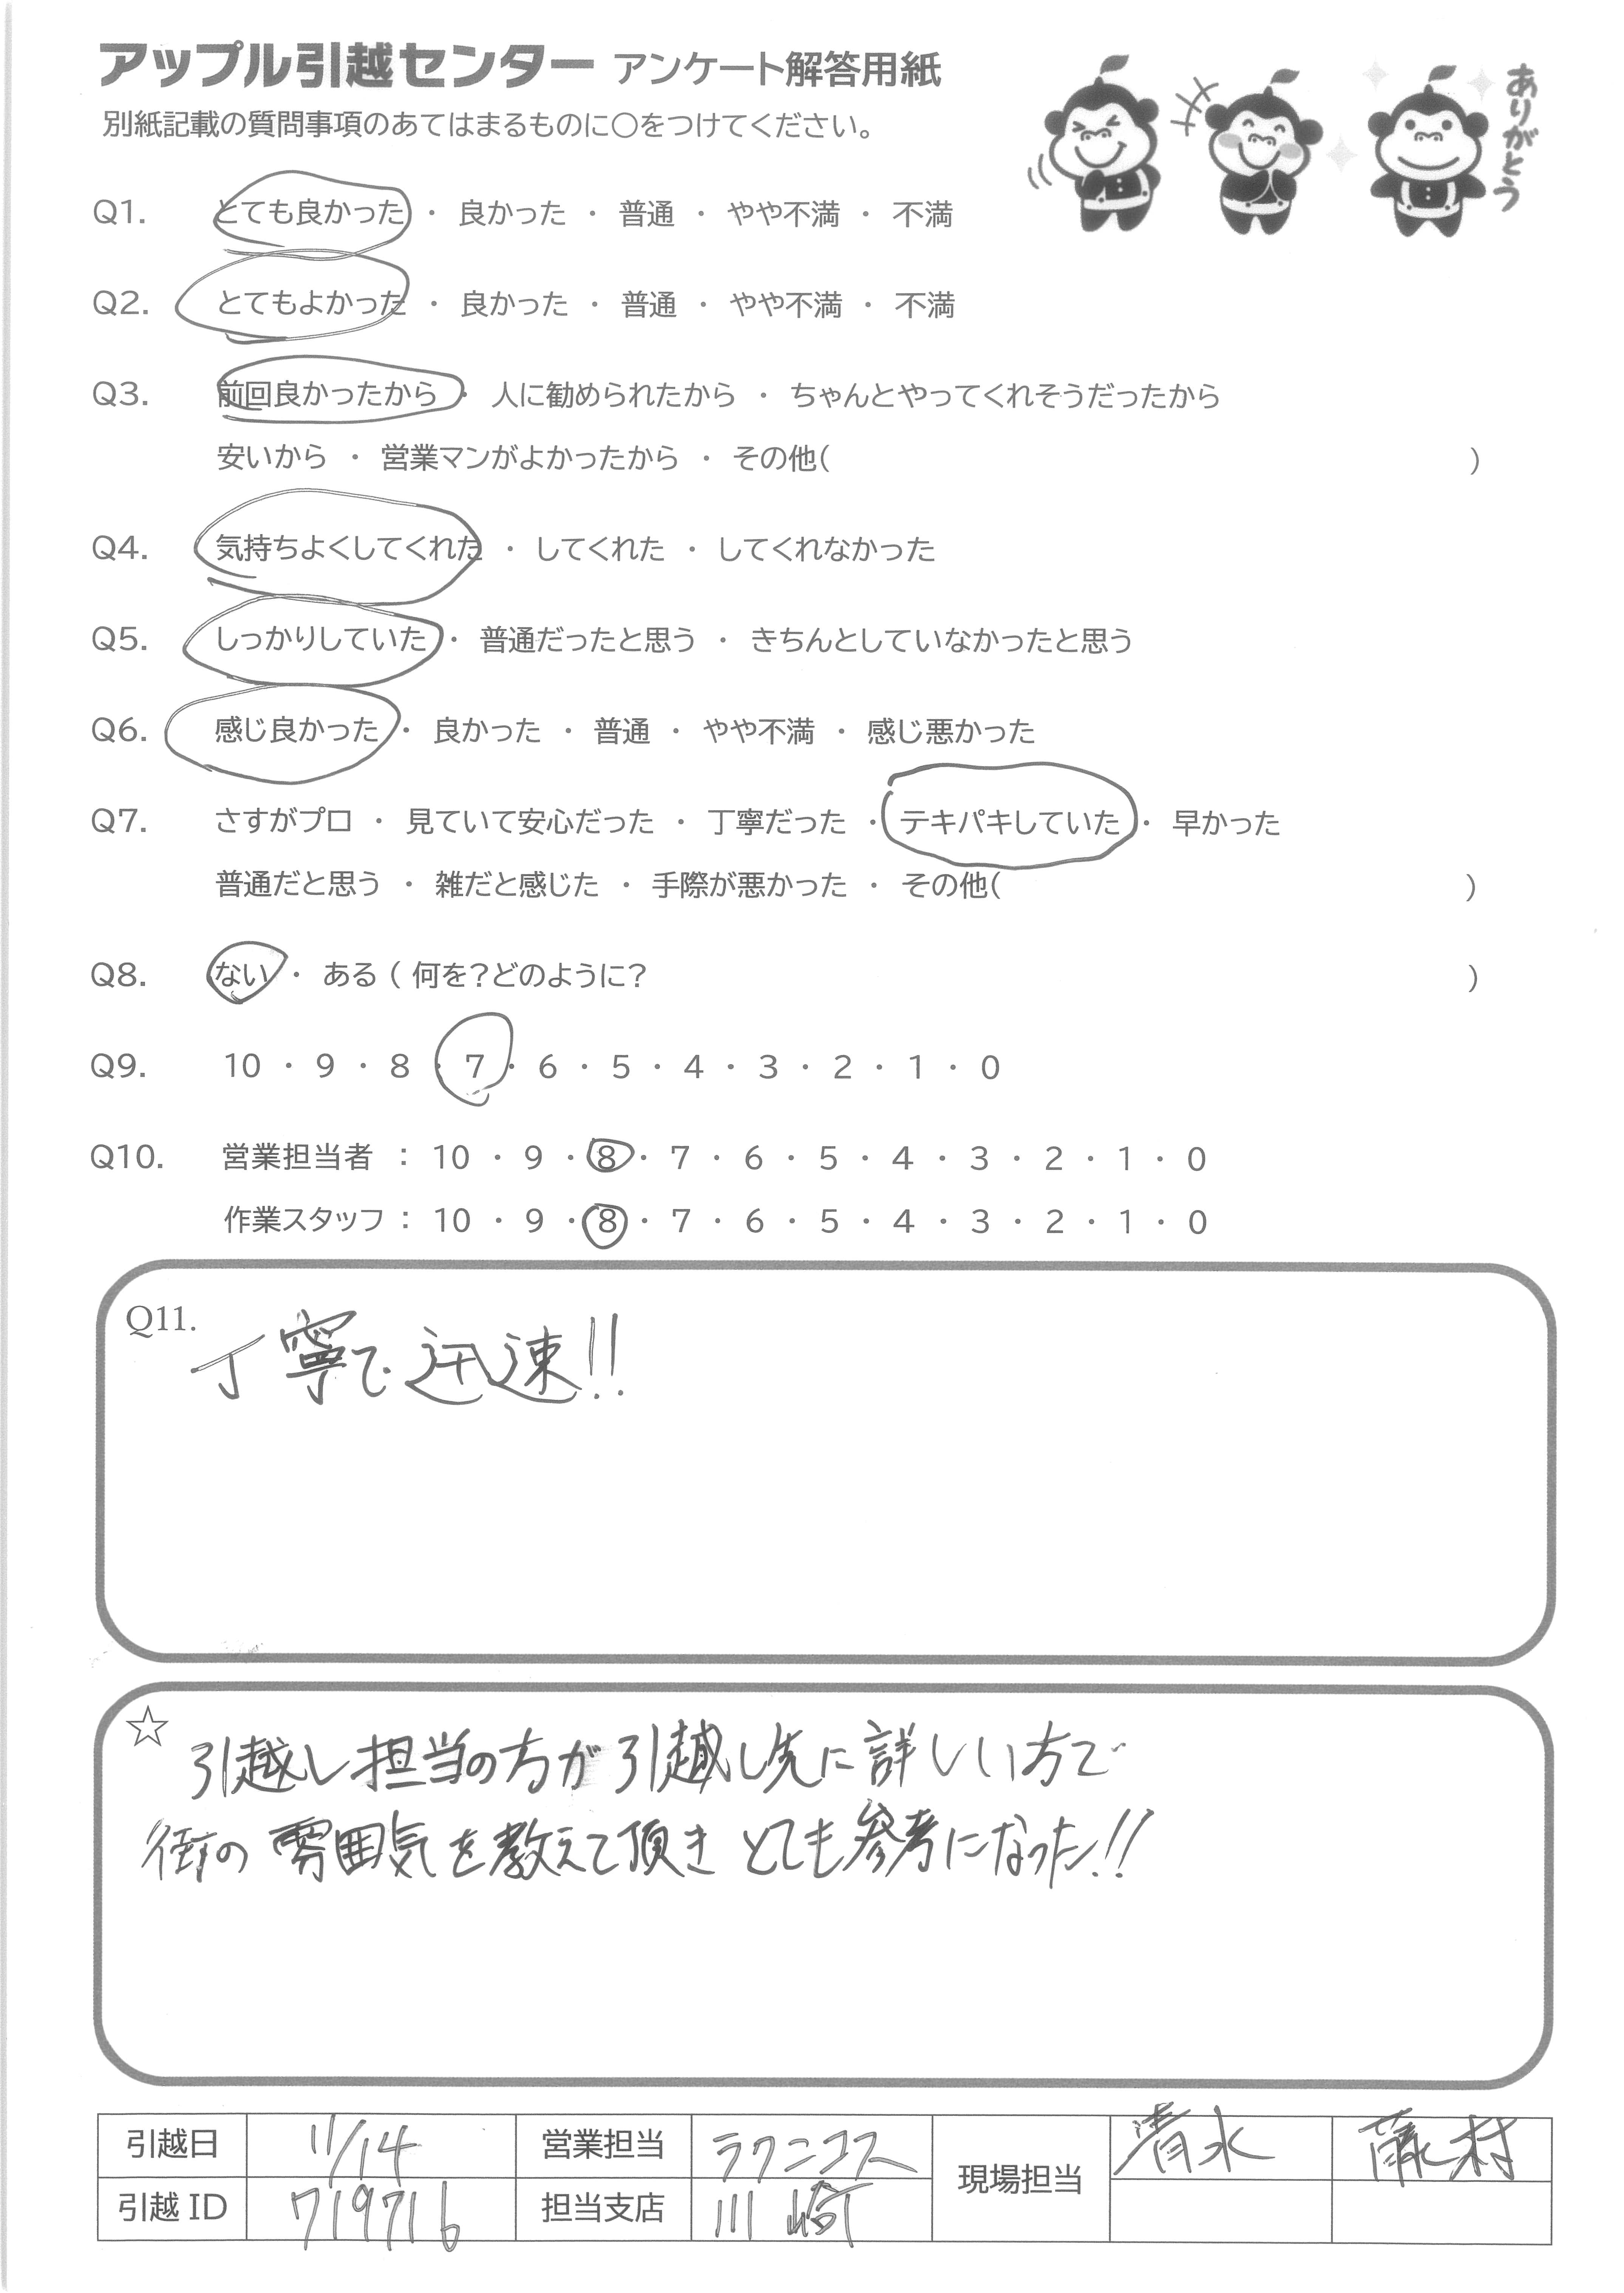 アップル引越センター アンケート解答用紙
別紙記載の質問事項のあてはまるものに○をつけてください。
ありがとう
Q1. とても良かった ・ 良かった ・ 普通 ・ やや不満 ・ 不満
Q2. とてもよかった ・ 良かった ・ 普通 ・ やや不満 ・ 不満
Q3. 前回良かったから ・ 人に勧められたから ・ ちゃんとやってくれそうだったから
安いから ・ 営業マンがよかったから ・ その他( )
Q4. 気持ちよくしてくれた ・ してくれた ・ してくれなかった
Q5. しっかりしていた ・ 普通だったと思う ・ きちんとしていなかったと思う
Q6. 感じ良かった ・ 良かった ・ 普通 ・ やや不満 ・ 感じ悪かった
Q7. さすがプロ ・ 見ていて安心だった ・ 丁寧だった ・ テキパキしていた ・ 早かった
普通だと思う ・ 雑だと感じた ・ 手際が悪かった ・ その他( )
Q8. ない ・ ある ( 何を?どのように? )
Q9. 10 ・ 9 ・ 8 ・ 7 ・ 6 ・ 5 ・ 4 ・ 3 ・ 2 ・ 1 ・ 0
Q10. 営業担当者 : 10 ・ 9 ・ 8 ・ 7 ・ 6 ・ 5 ・ 4 ・ 3 ・ 2 ・ 1 ・ 0
作業スタッフ : 10 ・ 9 ・ 8 ・ 7 ・ 6 ・ 5 ・ 4 ・ 3 ・ 2 ・ 1 ・ 0
Q11. 丁寧で迅速!!
☆ 引越し担当の方が引越し先に詳しい方で
街の雰囲気を教えて頂きとても参考になった!!
引越日 11/14 営業担当 ラクニコス 現場担当 清水 藤村
引越ID 719716 担当支店 川崎